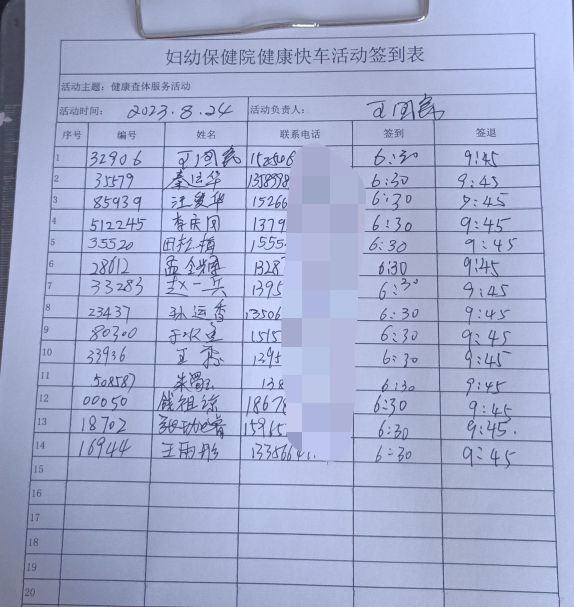 妇幼保健院健康快车活动签到表
活动主题：健康查体服务活动
活动时间： 2023.8.24 活动负责人： 王国富
序号 编号 姓名 联系电话 签到 签退
1 32906 王国富 6:30 9:45
2 35579 秦运华 1358998 6:30 9:45
3 85939 汪爱华 15266 6:30 9:45
4 512245 李庆国 1379 6:30 9:45
5 35520 田松梅 1555 6:30 9:45
6 28612 1328 6:30 9:45
7 33283 赵一兵 1395 6:30 9:45
8 23437 孙运香 13506 6:30 9:45
9 80300 1515 6:30 9:45
10 33936 王 1395 6:30 9:45
11 508587 138 6:30 9:45
12 00050 钱祖琼 18678 6:30 9:45
13 18702 15965 6:30 9:45.
14 16944 王雨彤 1335664 6:30 9:45
15
16
17
18
19
20